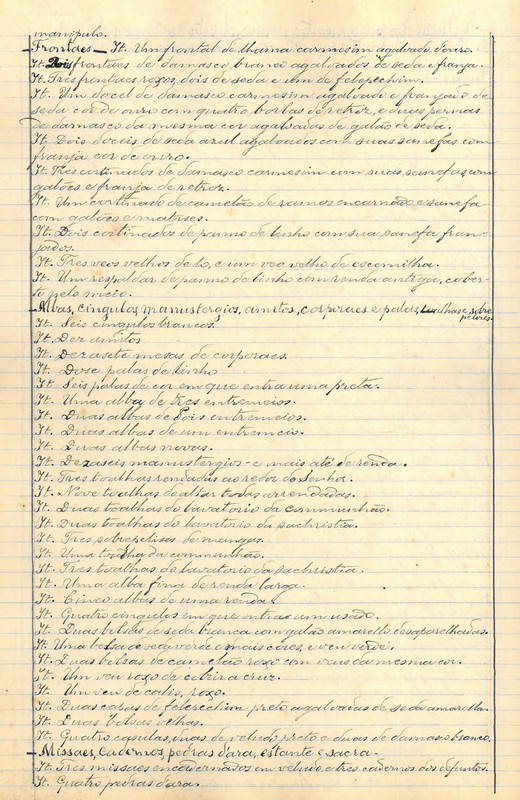 manipulo.
Frontaes - It. Um frontal de lhama carmesim agaloado d'ouro.
It. Dois frontaes de damasco branco agaloados de seda e franja.
It. Tres frontaes roxos, dois de seda e um de felepechim.
It. Um docel de damasco carmesim agaloado e franjado de
seda côr de ouro com quatro borlas de retroz, e duas pernas
de damasco da mesma cor agaloadas de galão de seda.
It. Dois doceis de seda azul agaloados com suas sanefas com
franja cor de ouro.
It. Tres cortinados de damasco carmesim com suas sanefas com
galões e franja de retroz.
It. Um cortinado de camelão de ramos encarnado e sanefa
com galões e matises.
It. Dois cortinados de panno de linho com sua sanefa fran-
jados.
It. Tres veos velhos de ló, e um veo velho de escomilha.
It. Um respaldar de panno de linho com renda antiga, cober-
to pelo meio.
- Albas, cingulos, manustergios, amitos, corporaes e palas, toalhas e sobre
pelizes.
It. Seis cingulos brancos.
It. Dez amitos
It. Dezasete mesas de corporaes.
It. Dose palas de linho
It. Seis palas de cor em que entra uma preta.
It. Uma alba de tres entremeios.
It. Duas albas de dois entremeios.
It. Duas albas de um entremeio.
It. Duas albas novas.
It. Dezaseis manustergios - e mais até de renda.
It. Tres toalhas rendadas ao redor do Senhor.
It. Nove toalhas do altar todas arrendadas.
It. Duas toalhas do lavatorio da communhão.
It. Duas toalhas do lavatorio da sachristia.
It. Tres sobrepelises de mangas.
It. Uma toalha da communhão.
It. Tres toalhas do lavatorio da sachristia.
It. Uma alba fina de renda larga.
It. Cinco albas de uma renda.
It. Quatro cingulos em que entra um usado.
It. Duas bolsas de seda branca com galão amarello desaparelhadas.
It. Uma bolsa de seda verde e mais côres, e veu verde.
It. Duas bolsas de camelão roxo com veus da mesma cor.
It. Um veu roxo de cobrir a cruz.
It. Um veu de calis, roxo.
It. Duas capas de felepechim preto agaloadas de seda amarella.
It. Duas bolsas velhas.
It. Quatro casulas, duas de veludo preto e duas de damasco branco.
- Missaes, cadernos, pedras d'ara, estante e sacra -
It. Tres missaes encadernados em veludo, e tres cadernos dos defuntos.
It. Quatro pedras d'ara.